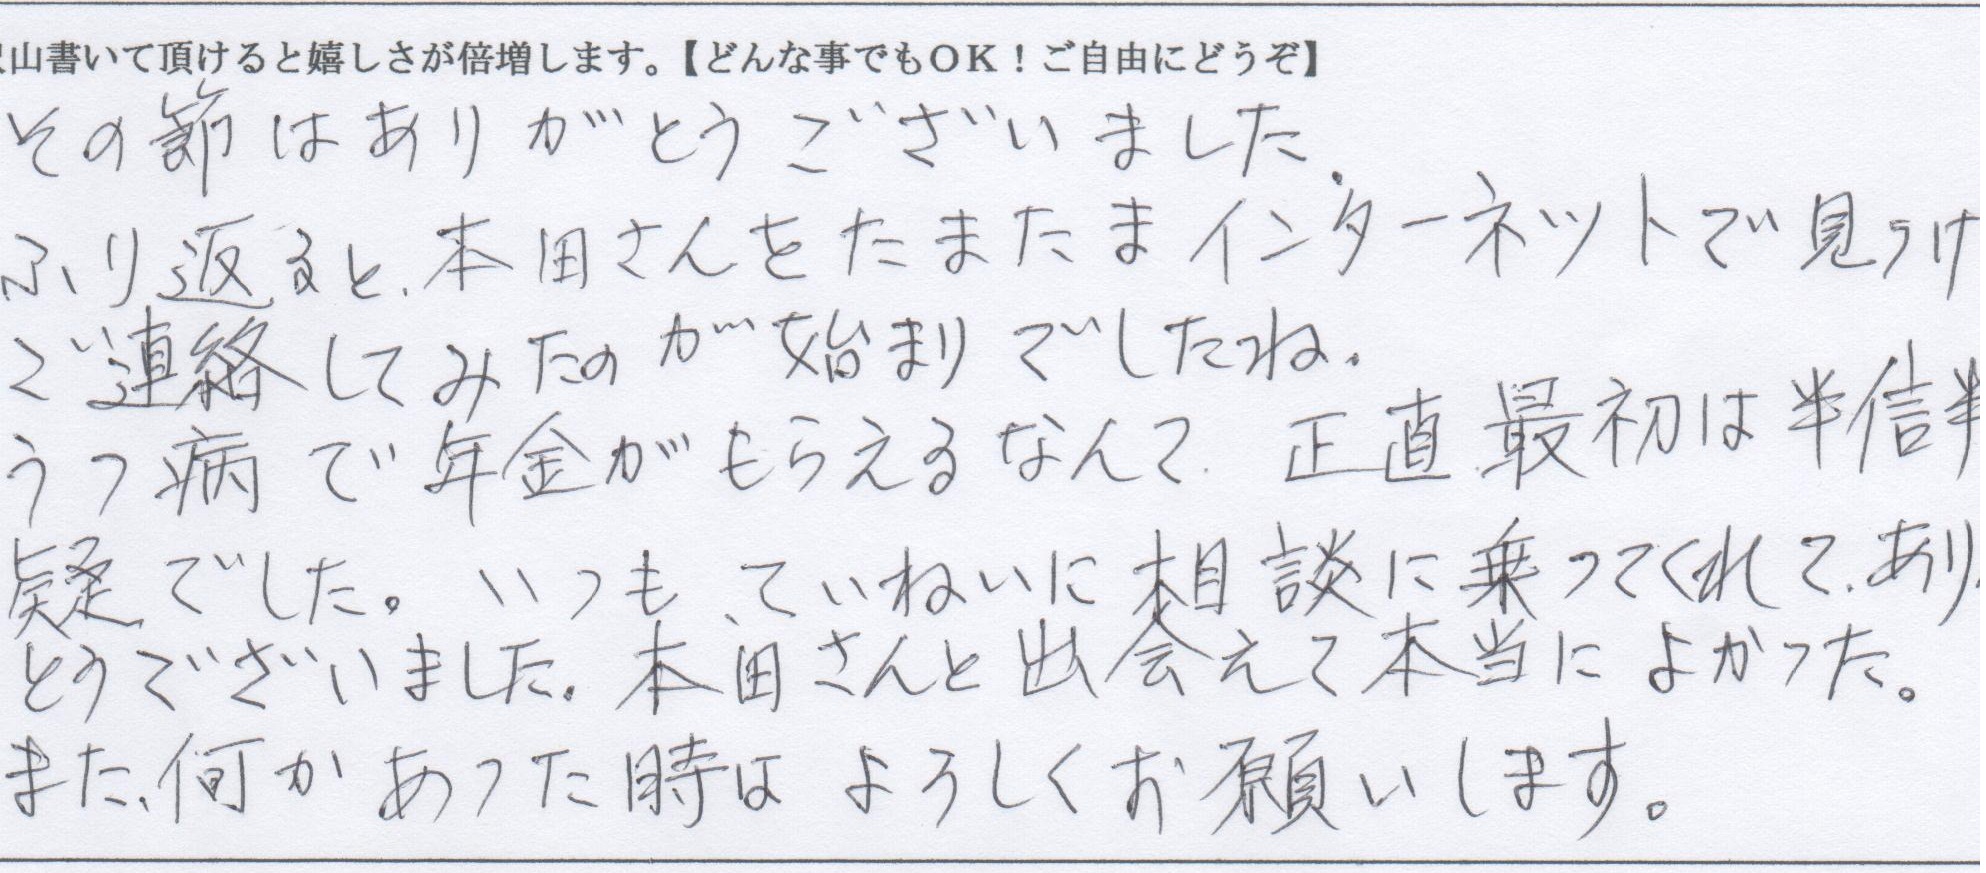 山書いて頂けると嬉しさが倍増します。【どんな事でもOK！ご自由にどうぞ】
その節はありがとうございました.
ふり返ると、本田さんをたまたまインターネットで見つけ
ご連絡してみたのが始まりでしたね.
うつ病で年金がもらえるなんて. 正直最初は半信半
疑でした。いつも、ていねいに相談に乗ってくれて、あり
とうございました. 本田さんと出会えて本当によかった。
また、何かあった時はよろしくお願いします。